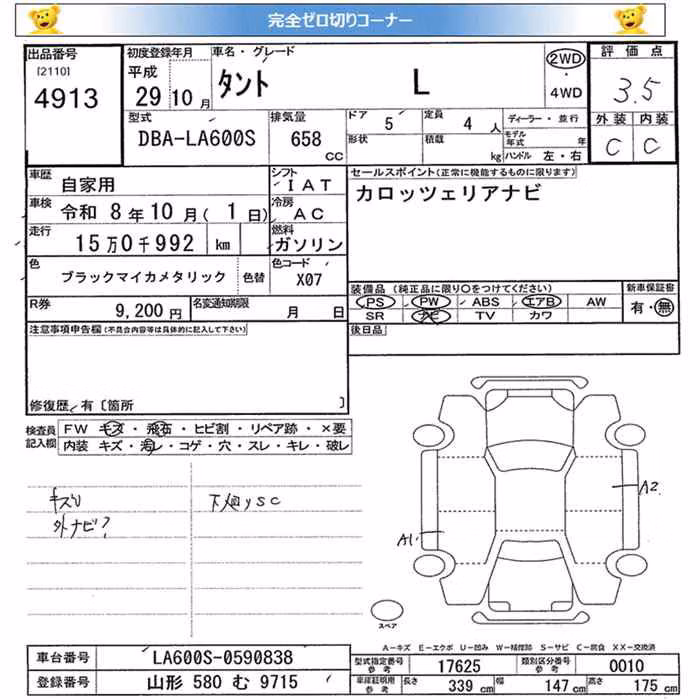 完全ゼロ切りコーナー
出品番号
[2110]
4913
初度登録年月
平成
29年10月
車名・グレード
タント L
2WD
・
4WD
評価点
3.5
外装 内装
C C
型式
DBA-LA600S
排気量
658
CC
ドア 5
定員 4人
形状
積載 kg
ディーラー・並行
モデル年式 年
ハンドル 左・右
車歴 自家用
シフト IAT
車検 令和 8年10月(1日)
冷房 AC
走行 15万0千992 km
燃料 ガソリン
色 ブラックマイカメタリック 色替
色コード X07
R券 9,200円
名変通知期限 月 日
セールスポイント(正常に機能するものに限ります)
カロッツェリアナビ
装備品(純正品に限り○をつけてください)
新車保証書
PS PW ABS エアB AW
有・無
SR ナビ TV カワ
後日品
注意事項申告欄(不具合内容等は具体的に記入して下さい)
修復歴・有〔箇所 〕
検査員記入欄
FW キズ・飛石・ヒビ割・リペア跡・×要
内装 キズ・汚レ・コゲ・穴・スレ・キレ・破レ
外ナビ?
下廻りSC
A2
A1
スペア
A-キズ E-エクボ U-凹み W-補修跡 S-サビ C-腐食 XX-交換済
車台番号 LA600S-0590838
登録番号 山形 580 む 9715
型式指定番号 参考 17625
類別区分番号 参考 0010
車庫証明用 参考 長さ 339 cm 幅 147 cm 高さ 175 cm